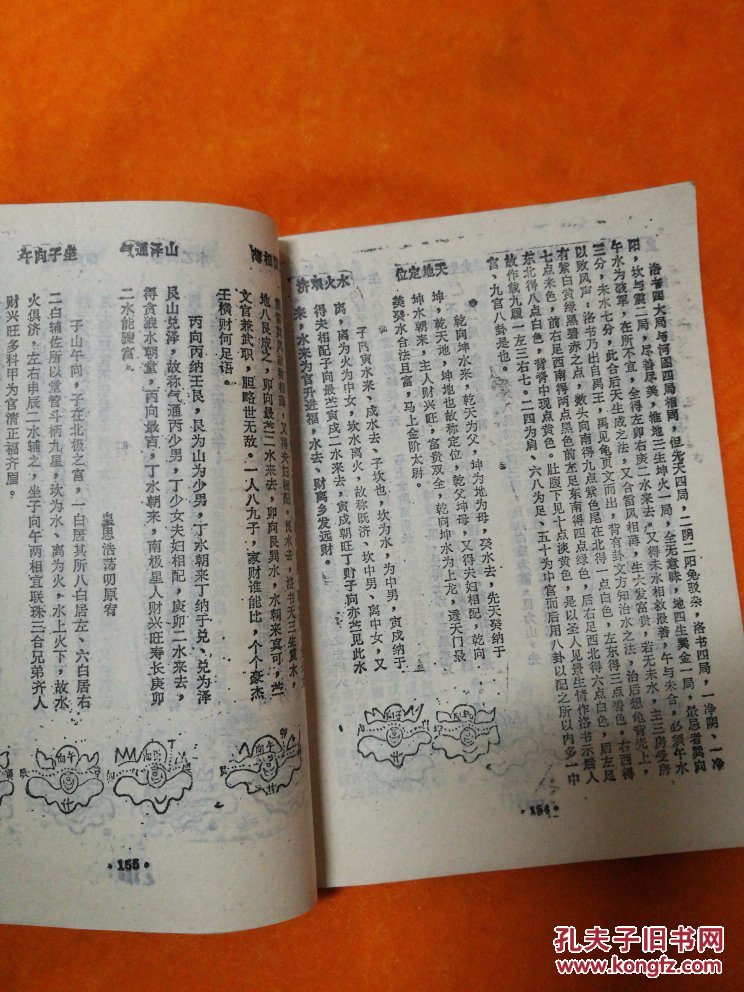 洛书四大局与河图四局相同，但先天四局，二阴二阳免驳杂，洛书四局，一净阴、一净
阳，坎与震二局，尽善尽美，惟地三生坤火一局，全无意味，地四生巽金一局，最忌者巽向
午水为破军，在所不宜，全得左卯右庚二水来去。又得未水相救最善，午与未合，必须午水
三分，未水七分，此合后天生成之法，又合雷风相薄，生六发富贵，若无未水，主三房受房
以败风声，洛书乃出自禹王，禹见龟负文而出，背有卦文方知治水之法，治后想龟背壳上，
有紫白黄绿黑碧赤之点，数头向南得九点紫色尾在北得一点白色，左东得三点碧色，右西得
七点赤色，前右足西南得两点黑色前左足东南得四点绿色，后右足西北得六点白色，后左足
东北得八点白色，背脊中现点黄色。肚腹下见十点淡黄色，是以圣人见景生情作洛书示后人
故作戴九履一左三右七。二四为肩、六八为足、五十为中宫而后用八卦以配之所以内多一中
宫、九宫八卦是也。
天地定位
乾向坤水来，乾天为父，坤为地为母，癸水去，先天癸纳于
坤，乾天地，坤地也故称定位，乾父坤母，又得夫妇相配，乾向
坤水朝来，主人财兴旺，富贵双全，乾向坤水为上龙，透天门最
美癸水合法且富，马上金阶太尉。
水火相济
子向寅水来、戍水去、子坎也，坎为水，为中男，寅戍纳于
离，离为火为中女，坎水离火，故称既济、坎中男、离中女，又
得夫妇相配子向最苎寅戍二水来去，寅戍朝旺丁财子向亦苎见此水
来，水来为官升进福，水去、财离乡发远财。
·154·
相薄，又得夫妇相配。艮水去，洛书天三生震水，
地八艮成之，卯向最苎二水来去，卯向艮巽水，水朝来真可，
文官兼武职，胆略世无敌。一人八九子，家财谁能比，个个豪杰
壬横财何足语。
山泽通气
丙向丙纳壬艮，艮为山为少男，丁水朝来丁纳于兑、兑为泽
艮山兑泽，故称气通丙少男，丁少女夫妇相配，庚卯二水来去，
得贪狼水朝堂，丙向最吉，丁水朝来，南极星人财兴旺寿长庚卯
二水能骤富。
皇恩浩荡叨原宥
坐子向午
子山午向，子在北极之宫，一白居其所八白居左、六白居右
二白辅佐所以掌管斗柄九星，坎为水、离为火，水上火下，故水
火俱济。左右申辰二水辅之，坐子向午两相宜联珠三合兄弟齐人
财兴旺多科甲为官清正福齐眉。
·155·
孔夫子旧书网
www.kongfz.com